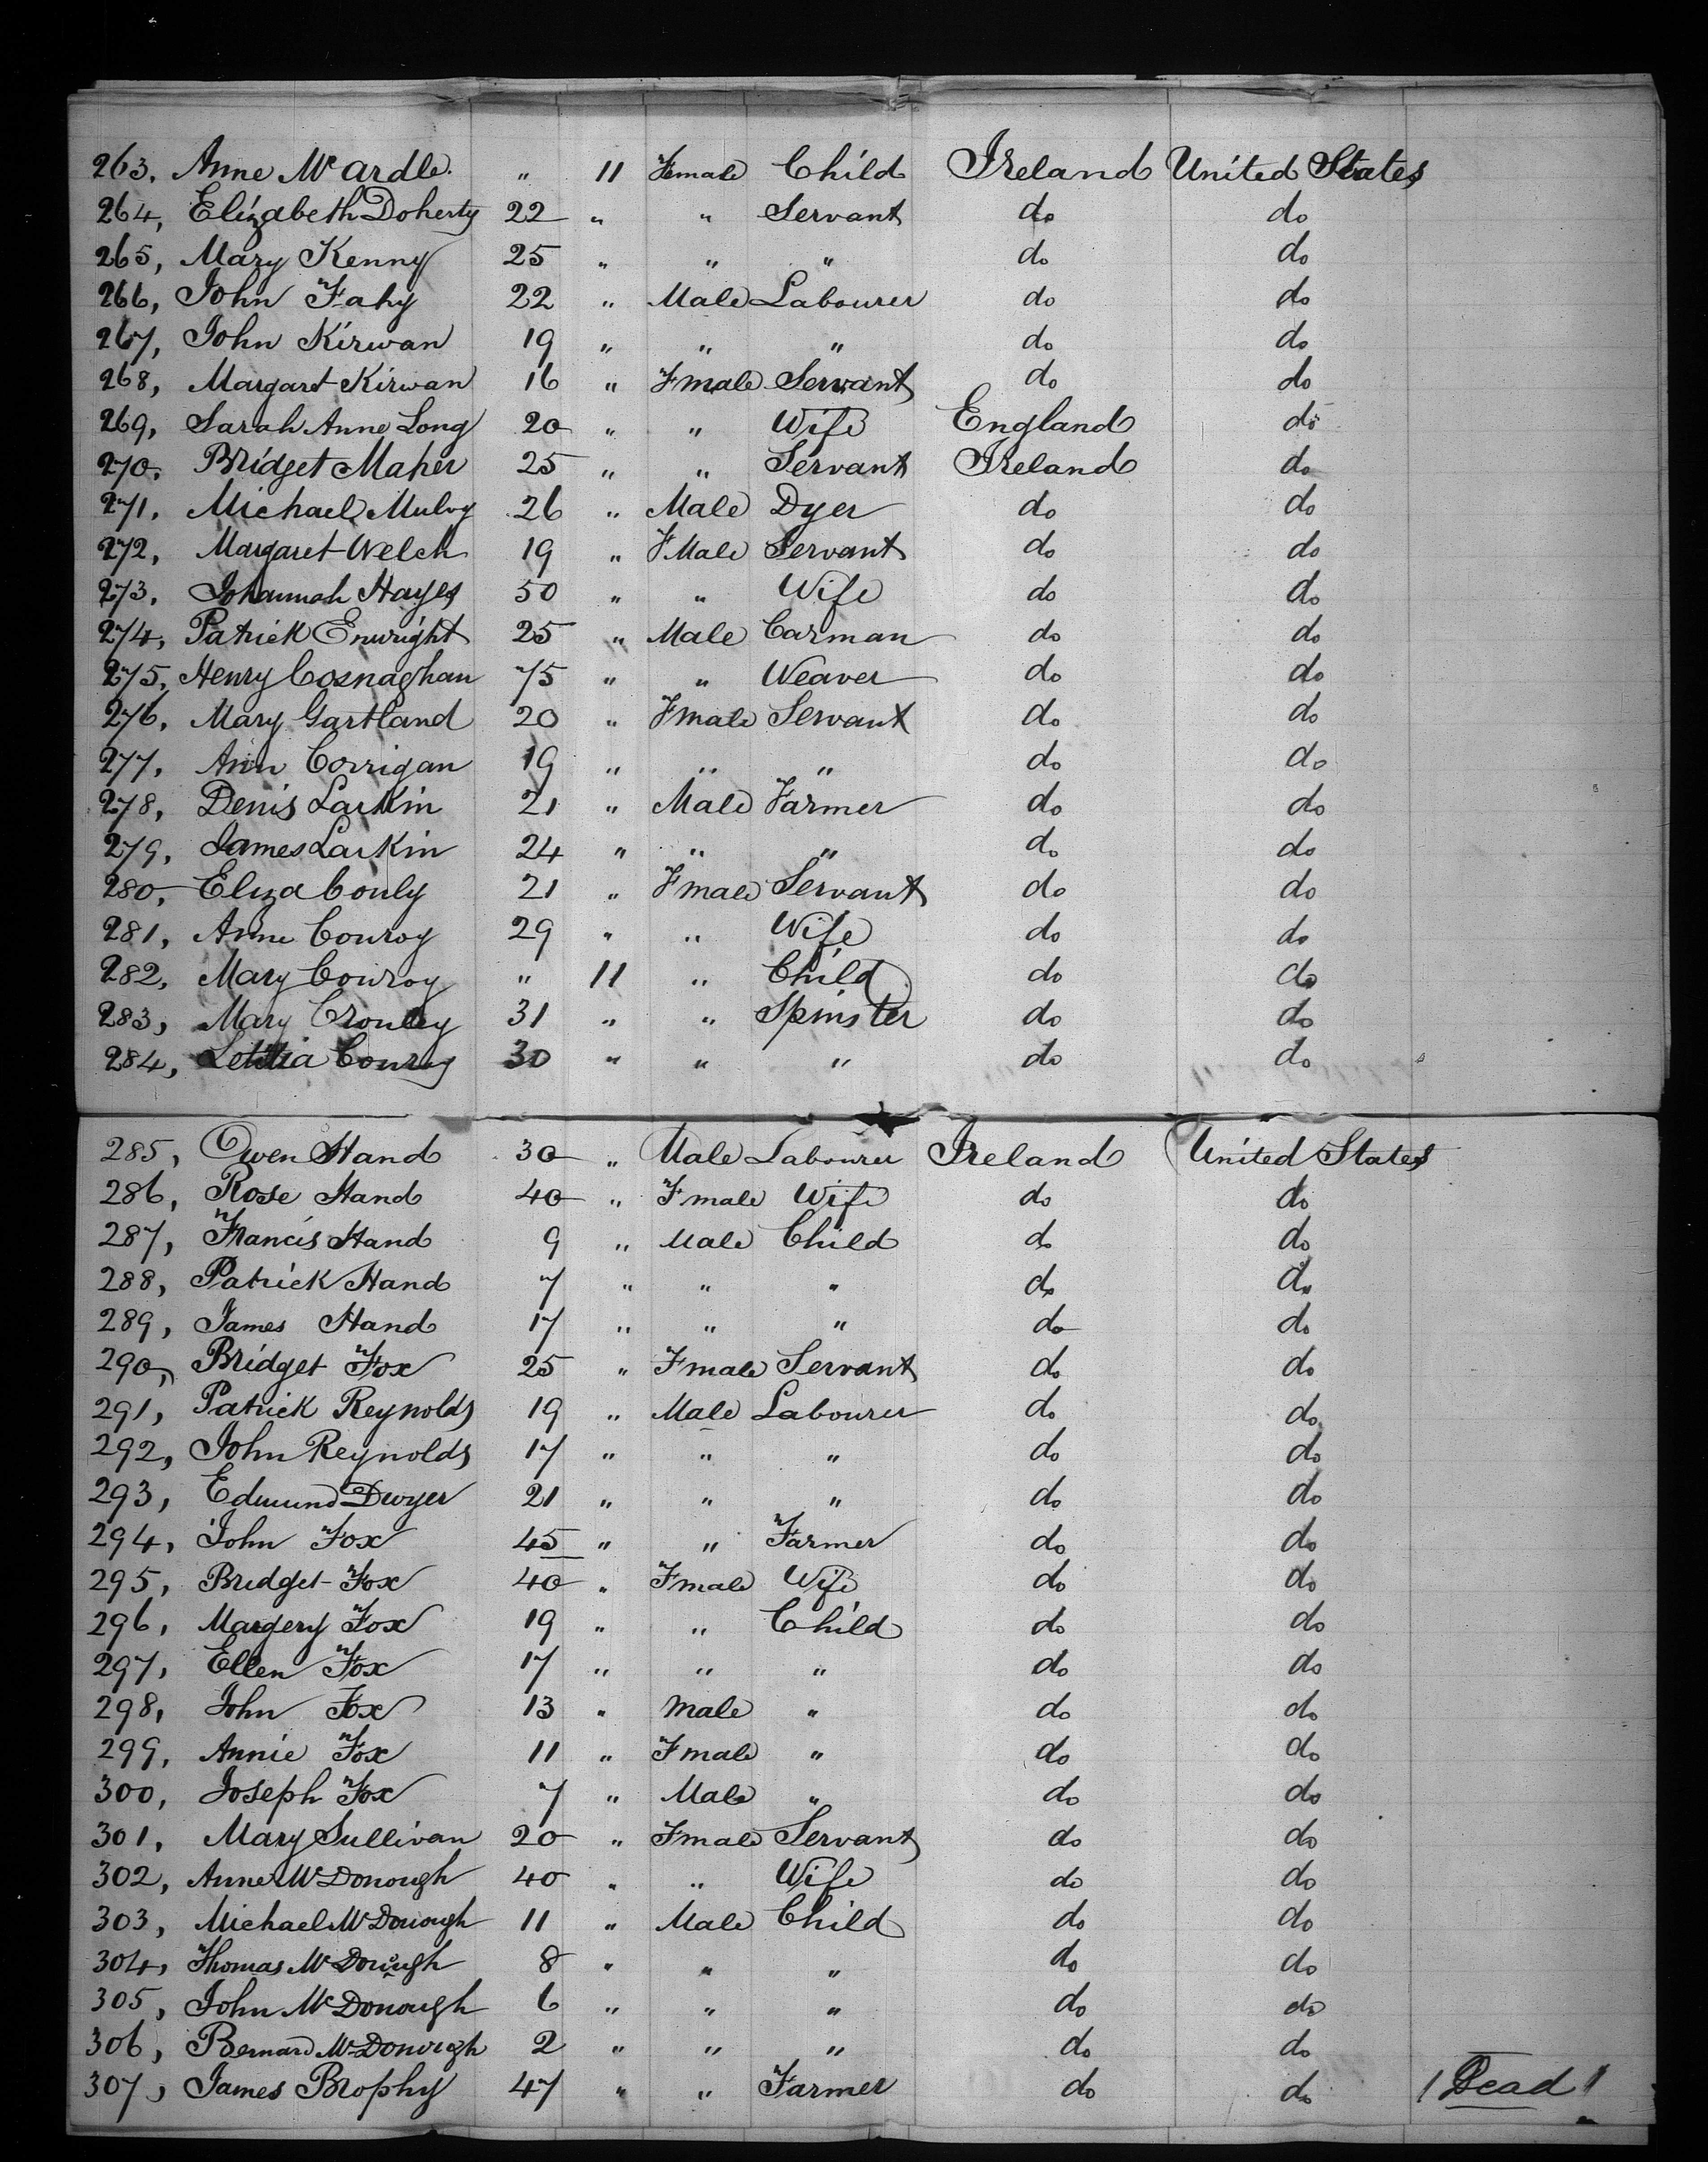 263, Anne McArdle " 11 Female Child Ireland United States
264, Elizabeth Doherty 22 " " Servant do do
265, Mary Kenny 25 " " " do do
266, John Fahy 22 " Male Labourer do do
267, John Kirwan 19 " " " do do
268, Margaret Kirwan 16 " Fmale Servant do do
269, Sarah Anne Long 20 " " Wife England do
270, Bridget Maher 25 " " Servant Ireland do
271, Michael Mulvy 26 " Male Dyer do do
272, Margaret Welch 19 " FMale Servant do do
273, Johannah Hayes 50 " " Wife do do
274, Patrick Enwright 25 " Male Carman do do
275, Henry Cosnaghan 75 " " Weaver do do
276, Mary Gartland 20 " Fmale Servant do do
277, Ann Corrigan 19 " " " do do
278, Denis Larkin 21 " Male Farmer do do
279, James Larkin 24 " " " do do
280, Eliza Conly 21 " Fmale Servant do do
281, Anne Conroy 29 " " Wife do do
282, Mary Conroy " 11 " Child do do
283, Mary Cronley 31 " " Spinster do do
284, Letitia Conroy 30 " " " do do
285, Owen Hand 30 " Male Labourer Ireland United States
286, Rose Hand 40 " Fmale Wife do do
287, Francis Hand 9 " Male Child do do
288, Patrick Hand 7 " " " do do
289, James Hand 17 " " " do do
290, Bridget Fox 25 " Fmale Servant do do
291, Patrick Reynolds 19 " Male Labourer do do
292, John Reynolds 17 " " " do do
293, Edmund Dwyer 21 " " " do do
294, John Fox 45 " " Farmer do do
295, Bridget Fox 40 " Fmale Wife do do
296, Margery Fox 19 " " Child do do
297, Ellen Fox 17 " " " do do
298, John Fox 13 " Male " do do
299, Annie Fox 11 " Fmale " do do
300, Joseph Fox 7 " Male " do do
301, Mary Sullivan 20 " Fmale Servant do do
302, Anne McDonough 40 " " Wife do do
303, Michael McDonough 11 " Male Child do do
304, Thomas McDonough 8 " " " do do
305, John McDonough 6 " " " do do
306, Bernard McDonough 2 " " " do do
307, James Brophy 47 " " Farmer do do / Dead /